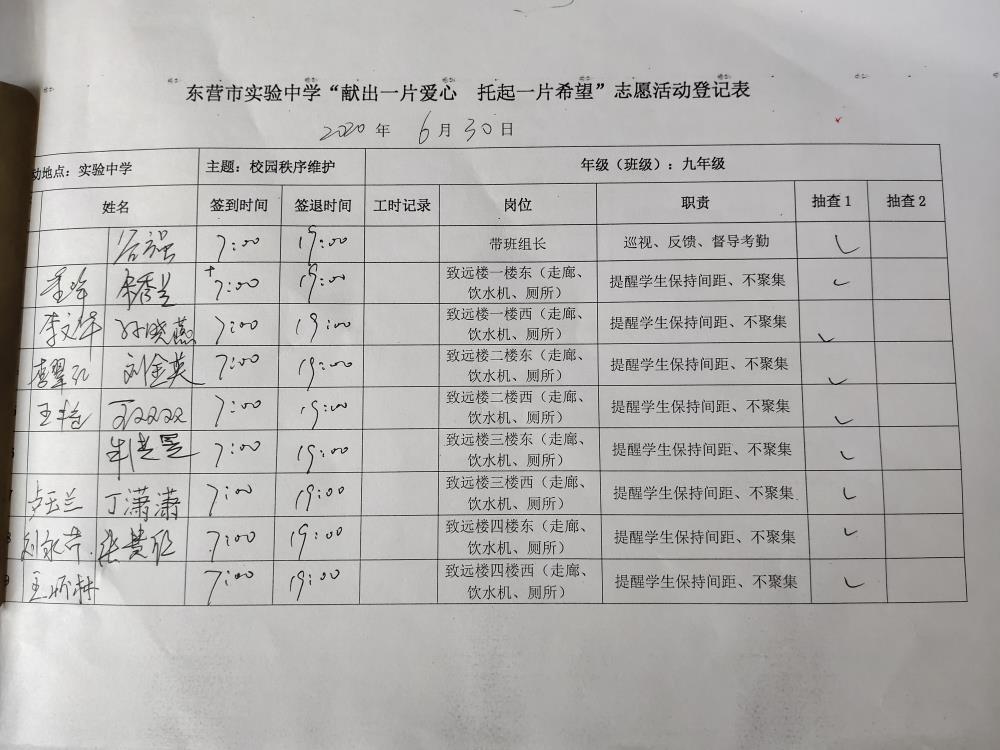 东营市实验中学“献出一片爱心 托起一片希望”志愿活动登记表
2020 年 6 月 30 日
动地点：实验中学 主题：校园秩序维护 年级（班级）：九年级
姓名 签到时间 签退时间 工时记录 岗位 职责 抽查 1 抽查 2
7:00 19:00 带班组长 巡视、反馈、督导考勤
7:00 19:00 致远楼一楼东（走廊、 提醒学生保持间距、不聚集
饮水机、厕所）
李文华 孙晓燕 7:00 19:00 致远楼一楼西（走廊、 提醒学生保持间距、不聚集
饮水机、厕所）
刘金英 7:00 19:00 致远楼二楼东（走廊、 提醒学生保持间距、不聚集
饮水机、厕所）
7:00 19:00 致远楼二楼西（走廊、 提醒学生保持间距、不聚集
饮水机、厕所）
7:00 19:00 致远楼三楼东（走廊、 提醒学生保持间距、不聚集
饮水机、厕所）
卢玉兰 丁潇潇 7:00 19:00 致远楼三楼西（走廊、 提醒学生保持间距、不聚集
饮水机、厕所）
刘永吉 7:00 19:00 致远楼四楼东（走廊、 提醒学生保持间距、不聚集
饮水机、厕所）
7:00 19:00 致远楼四楼西（走廊、 提醒学生保持间距、不聚集
饮水机、厕所）